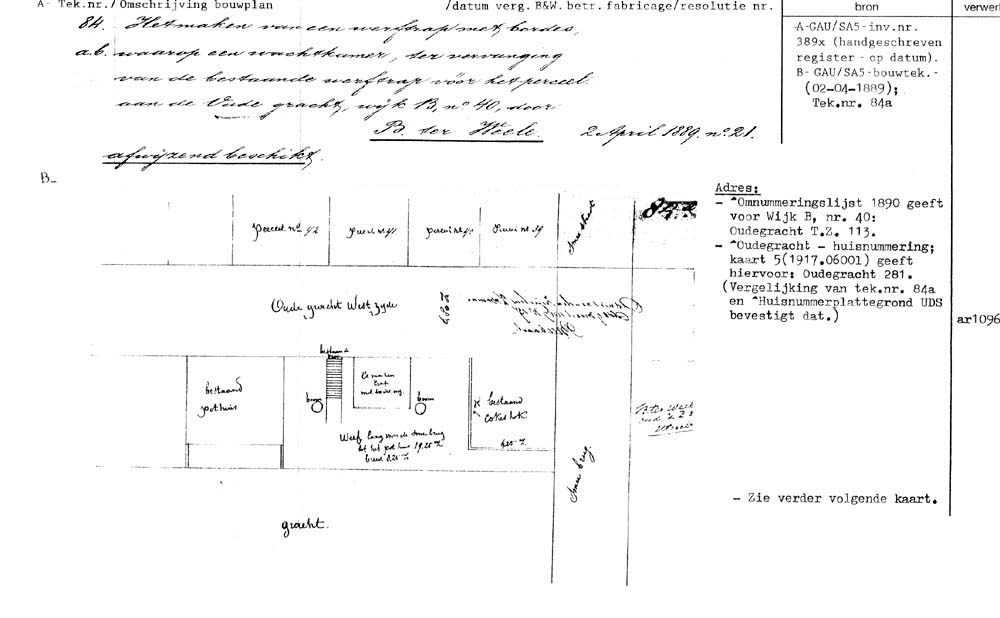 A- Tek.nr./Omschrijving bouwplan /datum verg. B&W. betr. fabricage/resolutie nr. bron verwer
84. Het maken van een werftrap met bordes,
a.b. waarop een wachtkamer, ter vervanging
van de bestaande werftrap vóór het perceel
aan de Oude gracht, wijk B, no 40, door
B. ter Weele. 2 April 1889, no 21.
afwijzend beschikt.
A-GAU/SA5-inv.nr.
389x (handgeschreven
register - op datum).
B- GAU/SA5-bouwtek.-
(02-04-1889);
Tek.nr. 84a
B-
Perceel no 42
Perceel no 41
Perceel no 40
Perceel no 39
Smeestraat
84a
Oude gracht West zyde
bestaande
bestaand
pothuis
boom
boom
Te maken
trap
bestaand
cokes hok
Werf lang van de Smeebrug
tot het pothuis 19.25
breed
Smee brug.
gracht.
B ter Weele
Adres:
- ^Omnummeringslijst 1890 geeft
voor Wijk B, nr. 40:
Oudegracht T.Z. 113.
- ^Oudegracht - huisnummering;
kaart 5(1917.06001) geeft
hiervoor: Oudegracht 281.
(Vergelijking van tek.nr. 84a
en ^Huisnummerplattegrond UDS
bevestigt dat.)
ar1096
- Zie verder volgende kaart.